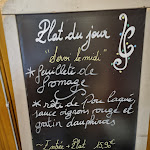 Plat du jour
"servi le midi"
* feuilleté de
fromage
* rôti de Porc laqué,
sauce oignons rouge et
gratin dauphinois
~ Entrée + Plat 15,90€